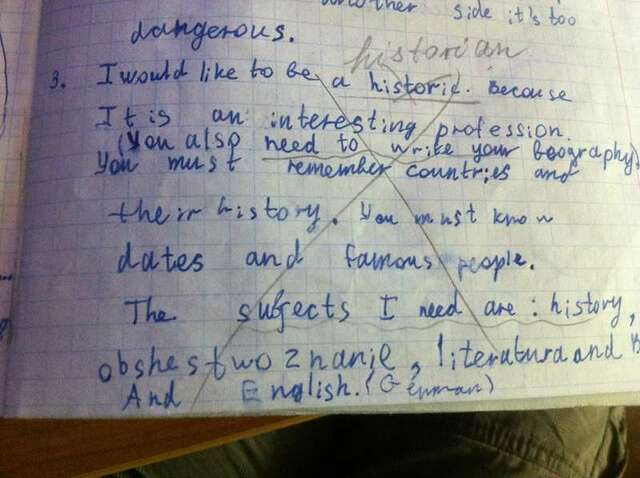 another side it's too
dangerous.
historian
3. I would like to be a historic. Because
It is an interesting profession.
(You also need to write your beography)
You must remember countries and
their history. You must know
dates and famous people.
The subjects I need are: history,
obshestwoznanie, literatura and
And English. (German)